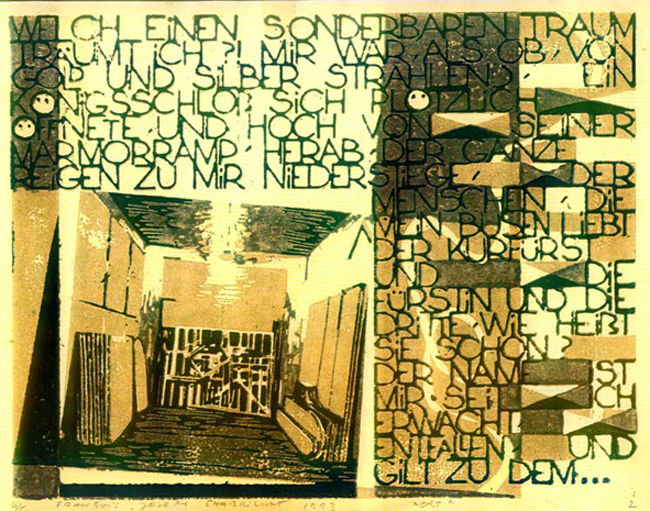 WELCH EINEN SONDERBAREN TRAUM
TRÄUMT ICH?! MIR WAR, ALS OB, VON
GOLD UND SILBER STRAHLEND, EIN
KÖNIGSSCHLOß SICH PLÖTZLICH
ÖFFNETE UND HOCH VON SEINER
MARMORRAMP' HERAB, DER GANZE
REIGEN ZU MIR NIEDERSTIEGE, DER
MENSCHEN, DIE
MEIN BUSEN LIEBT
DER KURFÜRST
UND DIE
FÜRSTIN UND DIE
DRITTE, WIE HEIßT
SIE SCHON?
DER NAME IST
MIR SEIT ICH
ERWACHT
ENTFALLEN UND
GILT ZU DEM...
FRANÇOIS JOSEPH 1993 "ORT" 1/2